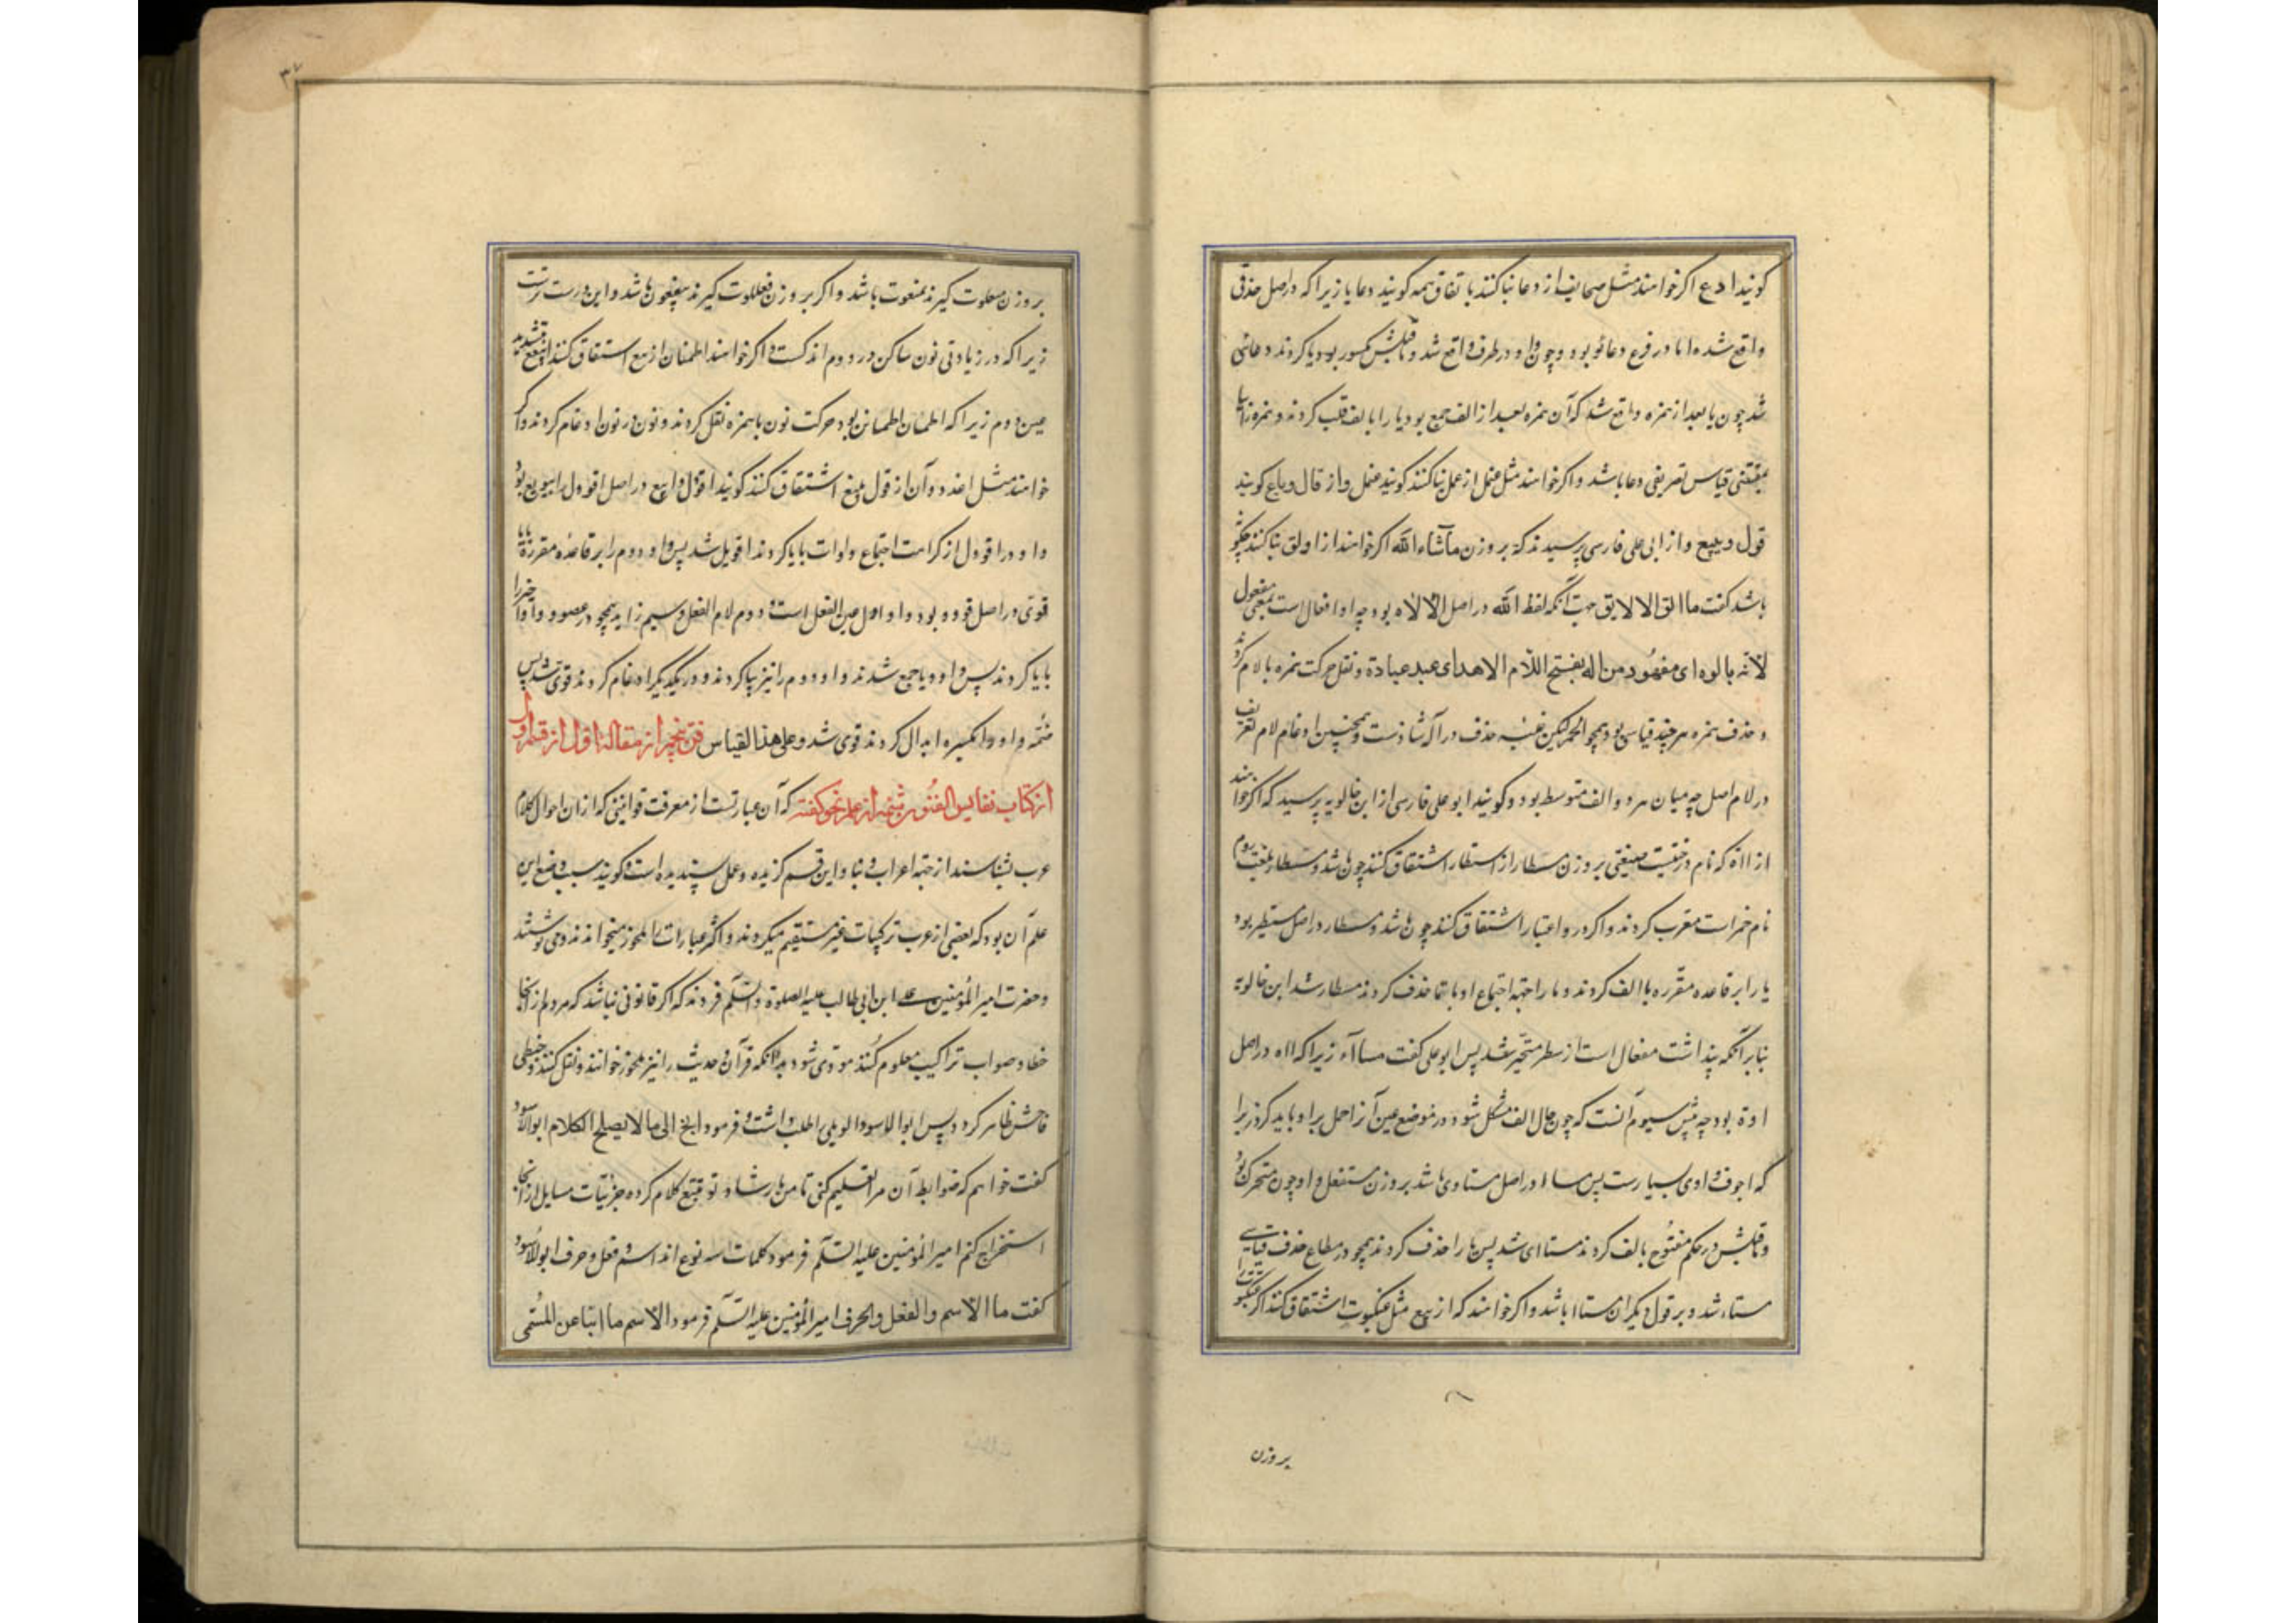 کویند ادع اکر خواهند مثل صحایف از دعا بنا کنند باتفاق همه کویند دعایا زیرا که در اصل حذفی
واقع شده اما در فرع دعائو بود و چون واو در طرف واقع شد و ماقبلش مکسور بود یا کردند دعائی
شد چون یا بعد از همزه واقع شد که آن همزه بعد از الف جمع بود یا را بالف قلب کردند و همزه را بیا
بمقتضی قیاس تصریفی دعایا شد و اکر خواهند مثل عنمل از عمل بنا کنند کویند عنمل و از قال و باع کویند
قول و بیع و از ابی علی فارسی پرسیدند که بر وزن ماشاء الله اکر خواهند از اولق بنا کنند چکونه
باشد کفت ما الق الالاق جهت آنکه لفظ الله در اصل الالاه بود چه او افعال است بمعنی مفعول
لانه مالوه ای معبود من اله بفتح اللام الاهة ای عبد عبادة و نقل حرکت همزه با لام کردند
و حذف همزه هر چند قیاسی بود همچو الحمر لیکن غلبه حذف در آله شاذست و همچنین ادغام لام تعریف
در لام اصل چه میان هر دو الف متوسط بود و کویند ابو علی فارسی از ابن خالویه پرسید که اکر خواهند
از ااة که نام درختیست صیغتی بر وزن مسطار از استطار اشتقاق کنند چون باشد و مسطار بلغت روم
نام خمر است معرب کردند و اکر در و اعتبار اشتقاق کنند چون باشد و مسطار در اصل مستطیر بود
یا را بر قاعده مقرره با الف کردند و تا را جهة اجتماع او با طا حذف کردند مسطار شد ابن خالویه
بنابر آنکه پنداشت مفعال است از سطر متحیر شد پس ابو علی کفت مساآء زیرا که ااه در اصل
اوة بود چه پیش سیبویه آنست که چون حال الف مشکل شود در موضع عین آنرا حمل بر واو باید کرد زیرا
که اجوف واوی بسیارست پس مساا در اصل مستاوی باشد بر وزن مستفعل واو چون متحرک بود
و ماقبلش در حکم مفتوح بالف کردند مستاای شد پس تا را حذف کردند همچو در مطاع حذف قیاسی
مستاء شد و بر قول دیکران مستاا باشد و اکر خواهند که از بیع مثل عنکبوت اشتقاق کنند اکر عنکبوت را
بر وزن
۳۷
بر وزن معلوت کیرند بنعوت باشد و اکر بر وزن فعللوت کیرند بیععوت باشد و این درست ترست
زیرا که در زیادتی نون ساکن در دوم اندکست و اکر خواهند اطمئنان از بیع اشتقاق کنند ابیعع بتشدید
عین دوم زیرا که اطمئن اطمأنن بود حرکت نون با همزه نقل کردند و نون در نون ادغام کردند و اکر
خواهند مثل اغدودن از قول و بیع اشتقاق کنند کویند اقوّل و ابیّع در اصل اقوول و ابیویع بود
واو در اقوول از کراهت اجتماع واوات بایا کردند اقویل شد پس واو دوم را بر قاعده مقرره بایا
قوی در اصل قووو بود واو اول عین الفعل است و دوم لام الفعل و سیم زاید همچو در عصوو و واو اخیر را
بایا کردند پس واو و یا جمع شدند واو دوم را نیز بیا کردند و در یکدیکر ادغام کردند قوی شد پس
ضمه واو را بکسره ابدال کردند قوی شد و علی هذا القیاس فن پنجم از مقاله اول از قسم اول
از کتاب نفایس الفنون شمه از علم نحو کفته که آن عبارتست از معرفت قوانینی که از آن احوال کلام
عرب بشناسند از جهة اعراب و بنا و این قسم کزیده و عمل پسندیده است و کویند سبب وضع این
علم آن بود که بعضی از عرب ترکیبات غیر مستقیم میکردند و اکثر عبارات را ملحون میخواندند و می نوشتند
و حضرت امیر المؤمنین علی ابن ابی طالب علیه الصلوة و السلم فرمودند که اکر قانونی نباشد که مردم از آنجا
خطا و صواب تراکیب معلوم کنند مؤدی شود بدانکه قرآن و حدیث را نیز ملحون خوانند و نقل کنند و خبطی
فاحش ظاهر کردد پس ابو الاسود الدویلی را طلب داشت و فرمود انح الی ما لا یصلح الکلام ابو الاسود
کفت خواهم که ضوابط آن مرا تعلیم کنی تا من بارشاد تو تتبع کلام کرده جزئیات مسایل از آنجا
استخراج کنم امیر المؤمنین علیه السلم فرمود کلمات سه نوع اند اسم و فعل و حرف ابو الاسود
کفت ما الاسم و الفعل و الحرف امیر المؤمنین علیه السلم فرمود الاسم ما انبا عن المسمی